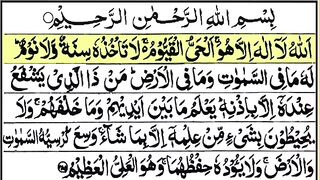 بِسْمِ اللهِ الرَّحْمٰنِ الرَّحِيْمِ
اَللهُ لَاۤ اِلٰهَ اِلَّا هُوَ ۚ اَلْحَىُّ الْقَيُّوْمُ ۚ لَا تَاْخُذُهٗ سِنَةٌ وَّلَا نَوْمٌ ؕ
لَهٗ مَا فِى السَّمٰوٰتِ وَمَا فِى الْاَرْضِ ؕ مَنْ ذَا الَّذِىْ يَشْفَعُ
عِنْدَهٗۤ اِلَّا بِاِذْنِهٖ ؕ يَعْلَمُ مَا بَيْنَ اَيْدِيْهِمْ وَمَا خَلْفَهُمْ ۚ وَلَا
يُحِيْطُوْنَ بِشَىْءٍ مِّنْ عِلْمِهٖۤ اِلَّا بِمَا شَآءَ ۚ وَسِعَ كُرْسِيُّهُ السَّمٰوٰتِ
وَالْاَرْضَ ۚ وَلَا يَئُوْدُهٗ حِفْظُهُمَا ۚ وَهُوَ الْعَلِىُّ الْعَظِيْمُ